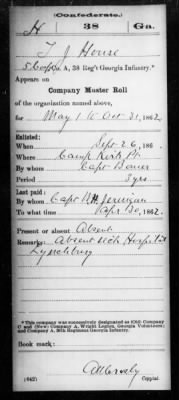 (Confederate.)
H 38 Ga.
T J House
Co. A, 38 Reg't Georgia Infantry.*
Appears on
Company Muster Roll
of the organization named above,
for May 1 to Oct 31, 1862.
Enlisted:
When Sept 26, 186
Where Camp Kirk
By whom Capt
Period 3 yrs
Last paid:
By whom Capt Jernigan
To what time Apr 30, 1862.
Present or absent Absent
Remarks: Absent sick Hospital
Lynchburg
*This company was successively designated as
C and (New) Company A, Wright Legion, Georgia Volunteers;
and Company A, 38th Regiment Georgia Infantry.
Book mark:
(642) Copyist.